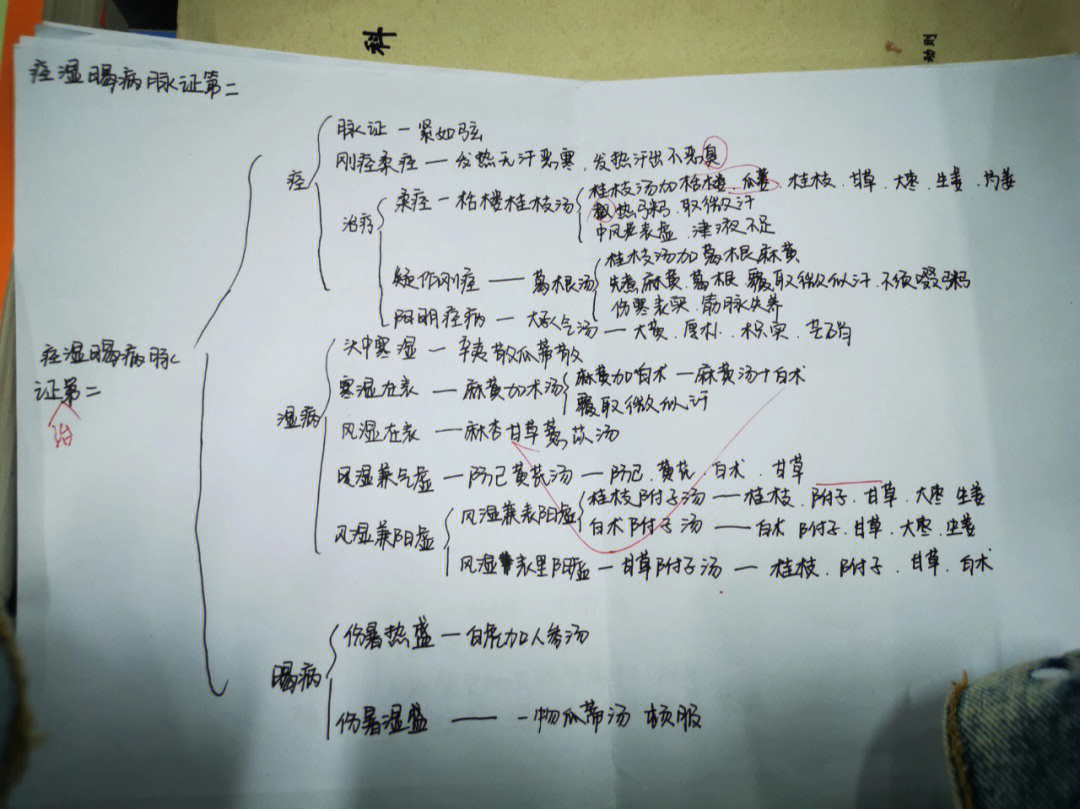 科
痉湿暍病脉证第二
痉
脉证 — 紧如弦
刚痉柔痉 — 发热无汗恶寒,发热汗出不恶臭
治疗
柔痉 — 栝楼桂枝汤
桂枝汤加栝楼.瓜蒌.桂枝.甘草.大枣.生姜.芍
热粥.取微汗
中风类表虚.津液不足
疑作刚痉 — 葛根汤
桂枝汤加葛根麻黄
先煮麻黄.葛根.覆取微似汗.不须啜粥
伤寒表实.筋脉失养
阳明痉病 — 大承气汤 — 大黄.厚朴.枳实.芒硝
痉湿暍病脉
证第二
治
湿病
头中寒湿 — 辛夷散瓜蒂散
寒湿在表 — 麻黄加术汤
麻黄加白术 — 麻黄汤+白术
覆取微似汗
风湿在表 — 麻杏甘草薏苡汤
风湿兼气虚 — 防己黄芪汤 — 防己.黄芪.白术.甘草
风湿兼阳虚
风湿兼表阳虚
桂枝附子汤 — 桂枝.附子.甘草.大枣 生姜
白术附子汤 — 白术 附子.甘草.大枣.生姜
风湿表里阳虚 — 甘草附子汤 — 桂枝.附子.甘草.白术
暍病
伤暑热盛 — 白虎加人参汤
伤暑湿盛 — 一物瓜蒂汤 顿服